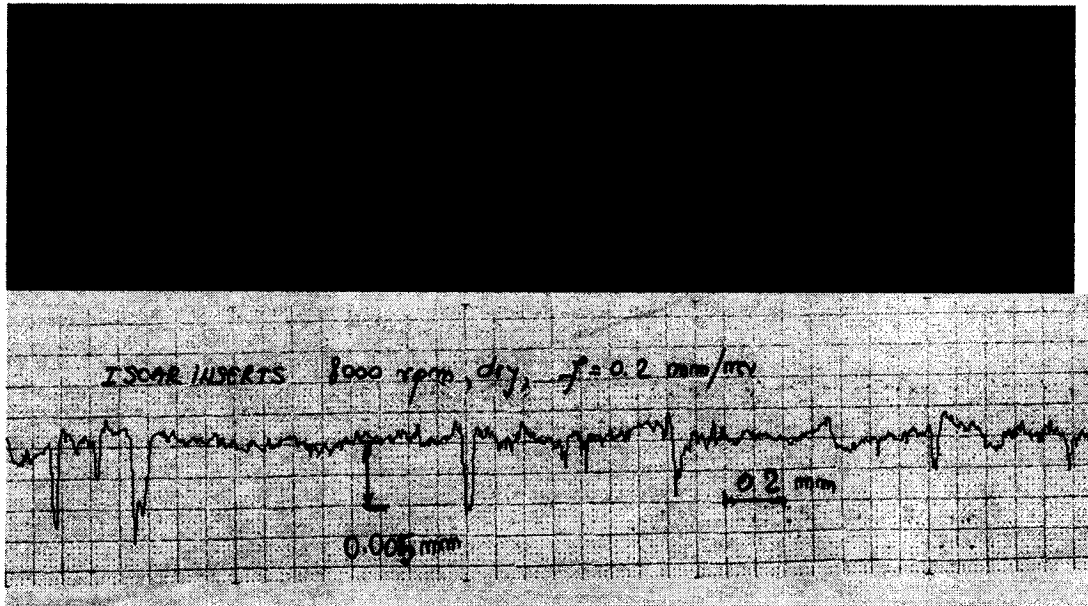 ISCAR INSERTS 8000 rpm, dry, f = 0.2 mm/rev
0.2 mm
0.005 mm